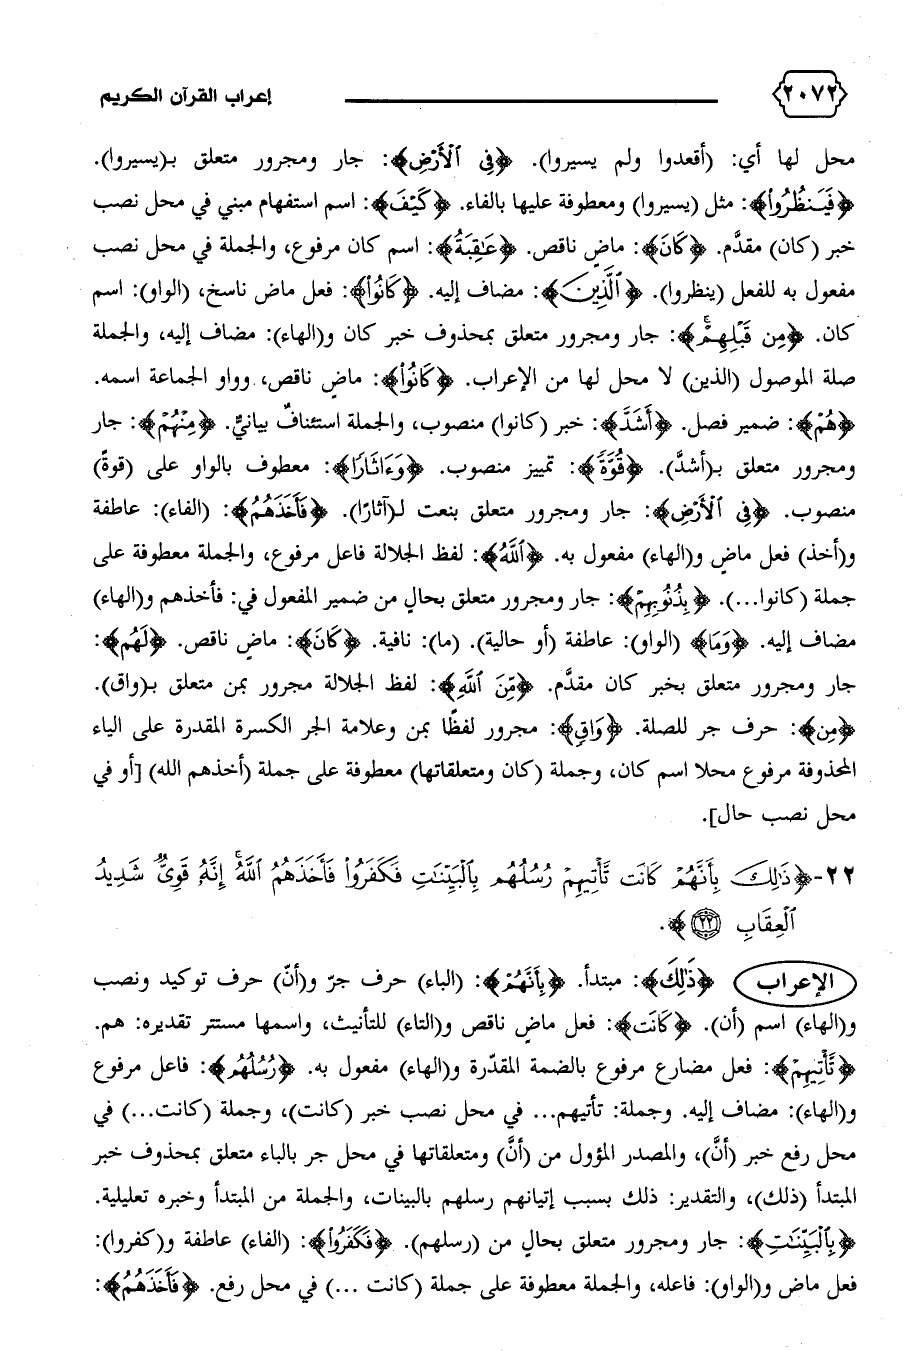 ٢٠٧٢ إعراب القرآن الكريم
محل لها أي: (أقعدوا ولم يسيروا). ﴿فِي ٱلْأَرْضِ﴾: جار ومجرور متعلق بـ(يسيروا).
﴿فَيَنظُرُوا۟﴾: مثل (يسيروا) ومعطوفة عليها بالفاء. ﴿كَيْفَ﴾: اسم استفهام مبني في محل نصب
خبر (كان) مقدَّم. ﴿كَانَ﴾: ماضٍ ناقص. ﴿عَٰقِبَةُ﴾: اسم كان مرفوع، والجملة في محل نصب
مفعول به للفعل (ينظروا). ﴿ٱلَّذِينَ﴾: مضاف إليه. ﴿كَانُوا۟﴾: فعل ماض ناسخ، (الواو): اسم
كان. ﴿مِن قَبْلِهِمْ ۚ﴾: جار ومجرور متعلق بمحذوف خبر كان و(الهاء): مضاف إليه، والجملة
صلة الموصول (الذين) لا محل لها من الإعراب. ﴿كَانُوا۟﴾: ماضٍ ناقص، وواو الجماعة اسمه.
﴿هُمْ﴾: ضمير فصل. ﴿أَشَدَّ﴾: خبر (كانوا) منصوب، والجملة استئنافٌ بيانيٌّ. ﴿مِنْهُمْ﴾: جار
ومجرور متعلق بـ(أشدَّ). ﴿قُوَّةً﴾: تمييز منصوب. ﴿وَءَاثَارًا﴾: معطوف بالواو على (قوةً)
منصوب. ﴿فِي ٱلْأَرْضِ﴾: جار ومجرور متعلق بنعت لـ(آثارًا). ﴿فَأَخَذَهُمُ﴾: (الفاء): عاطفة
و(أخذ) فعل ماضٍ و(الهاء) مفعول به. ﴿ٱللَّهُ﴾: لفظ الجلالة فاعل مرفوع، والجملة معطوفة على
جملة (كانوا...). ﴿بِذُنُوبِهِمْ﴾: جار ومجرور متعلق بحالٍ من ضمير المفعول في: فأخذهم و(الهاء)
مضاف إليه. ﴿وَمَا﴾ (الواو): عاطفة (أو حالية). (ما): نافية. ﴿كَانَ﴾: ماضٍ ناقص. ﴿لَهُم﴾:
جار ومجرور متعلق بخبر كان مقدَّم. ﴿مِّنَ ٱللَّهِ﴾: لفظ الجلالة مجرور بمن متعلق بـ(واق).
﴿مِن﴾: حرف جر للصلة. ﴿وَاقٍ﴾: مجرور لفظًا بمن وعلامة الجر الكسرة المقدرة على الياء
المحذوفة مرفوع محلا اسم كان، وجملة (كان ومتعلقاتها) معطوفة على جملة (أخذهم الله) [أو في
محل نصب حال].
٢٢-﴿ذَٰلِكَ بِأَنَّهُمْ كَانَت تَّأْتِيهِمْ رُسُلُهُم بِٱلْبَيِّنَٰتِ فَكَفَرُوا۟ فَأَخَذَهُمُ ٱللَّهُ ۚ إِنَّهُۥ قَوِىٌّ شَدِيدُ
ٱلْعِقَابِ ٢٢﴾.
الإعراب ﴿ذَٰلِكَ﴾: مبتدأ. ﴿بِأَنَّهُمْ﴾: (الباء) حرف جرّ و(أنّ) حرف توكيد ونصب
و(الهاء) اسم (أن). ﴿كَانَت﴾: فعل ماضٍ ناقص و(التاء) للتأنيث، واسمها مستتر تقديره: هم.
﴿تَّأْتِيهِمْ﴾: فعل مضارع مرفوع بالضمة المقدّرة و(الهاء) مفعول به. ﴿رُسُلُهُم﴾: فاعل مرفوع
و(الهاء): مضاف إليه. وجملة: تأتيهم... في محل نصب خبر (كانت)، وجملة (كانت...) في
محل رفع خبر (أنَّ)، والمصدر المؤول من (أنَّ) ومتعلقاتها في محل جر بالباء متعلق بمحذوف خبر
المبتدأ (ذلك)، والتقدير: ذلك بسبب إتيانهم رسلهم بالبينات، والجملة من المبتدأ وخبره تعليلية.
﴿بِٱلْبَيِّنَٰتِ﴾: جار ومجرور متعلق بحالٍ من (رسلهم). ﴿فَكَفَرُوا۟﴾: (الفاء) عاطفة و(كفروا):
فعل ماض و(الواو): فاعله، والجملة معطوفة على جملة (كانت ...) في محل رفع. ﴿فَأَخَذَهُمُ﴾: